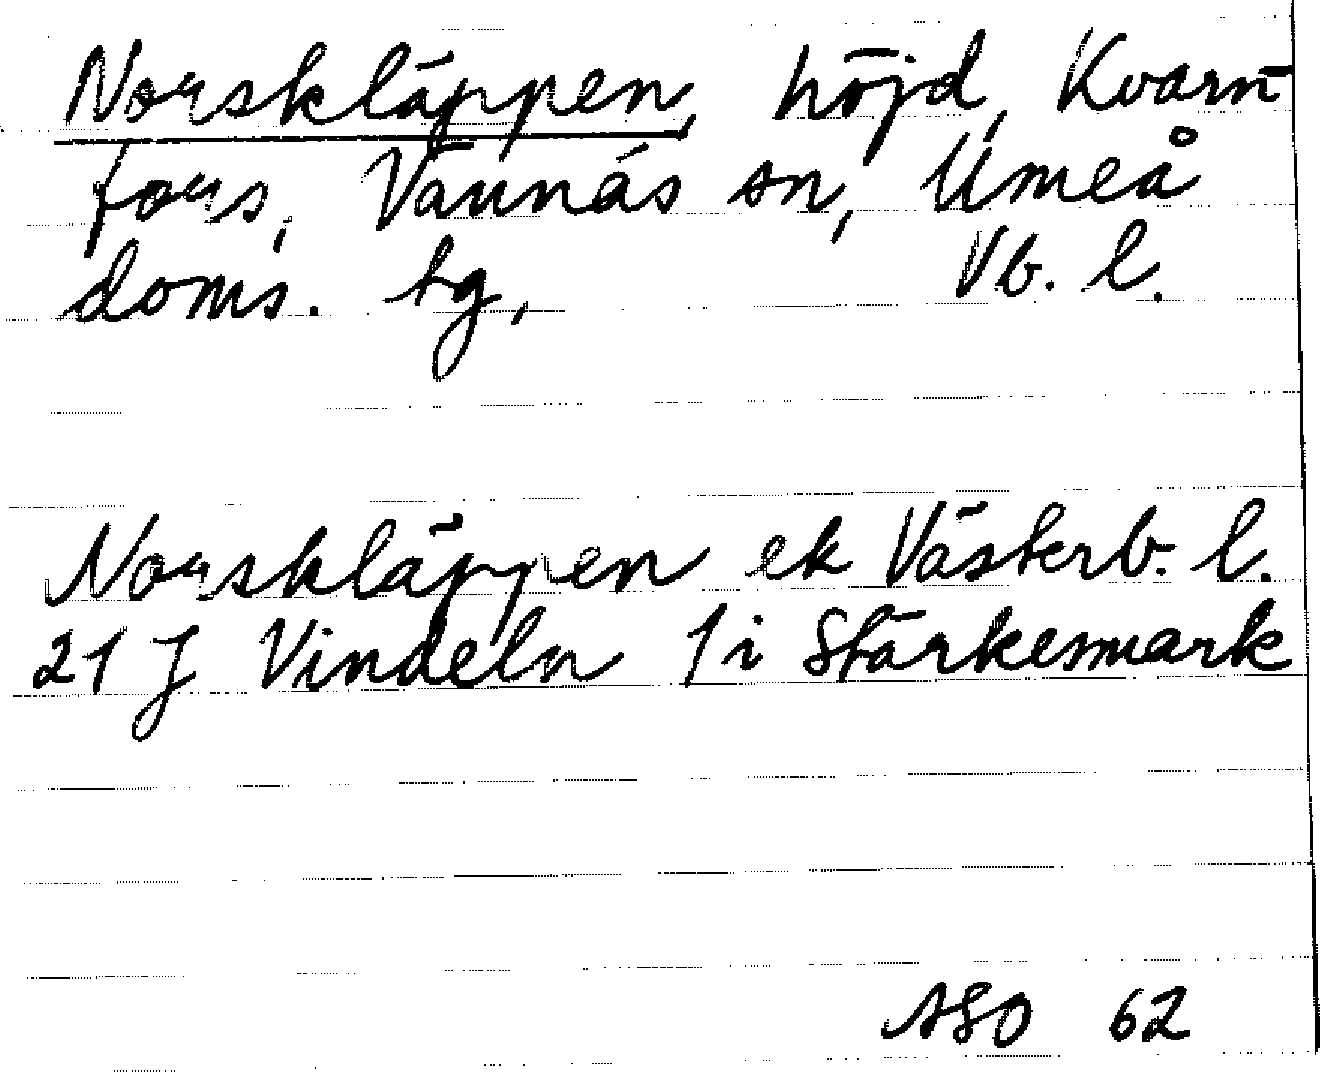 Norskläppen, höjd, Kvarn-
fors, Vännäs sn, Umeå
doms. tg, Vb. l.
Norskläppen ek Västerb. l.
21 J Vindeln 1 i Stärkesmark
ASO 62